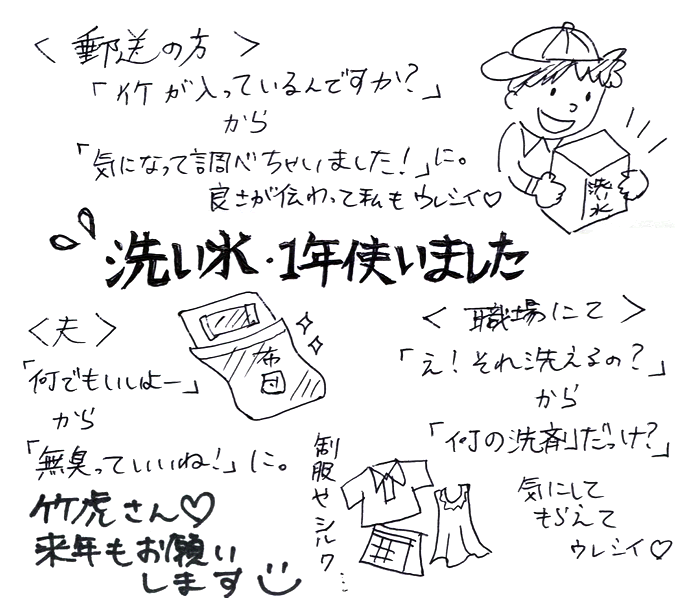 ＜郵送の方＞
「竹が入っているんですか?」
から
「気になって調べちゃいました!」に。
良さが伝わって私もウレシイ♡
洗い水
洗い水・1年使いました
＜夫＞
「何でもいいよー」
から
「無臭っていいね!」に。
布団
＜職場にて＞
「え!それ洗えるの?」
から
「何の洗剤だっけ?」
気にして
もらえて
ウレシイ♡
制服やシルク…
竹虎さん♡
来年もお願い
します